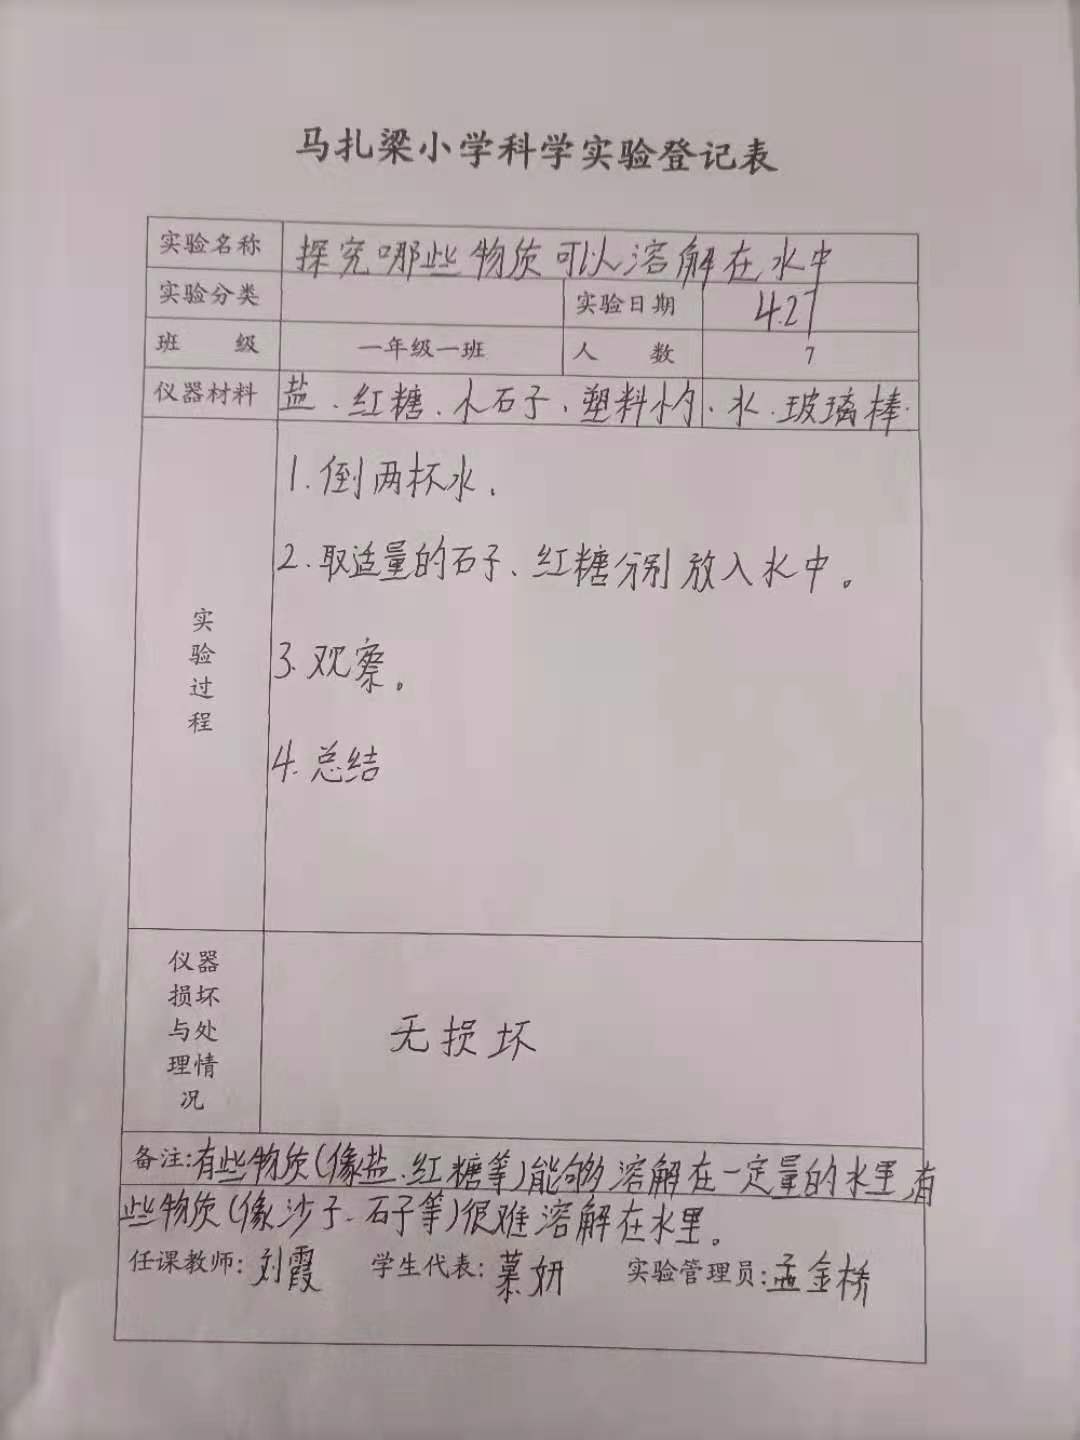 马扎梁小学科学实验登记表
实验名称 探究哪些物质可以溶解在水中
实验分类 实验日期 4.27
班 级 一年级一班 人 数 7
仪器材料 盐、红糖、小石子、塑料杓、水、玻璃棒.
实验过程
1.倒两杯水.
2.取适量的石子、红糖分别放入水中。
3.观察。
4.总结
仪器损坏与处理情况 无损坏
备注:有些物质(像盐、红糖等)能够溶解在一定量的水里,有
些物质(像沙子、石子等)很难溶解在水里。
任课教师:刘霞 学生代表:慕妍 实验管理员:孟金桥